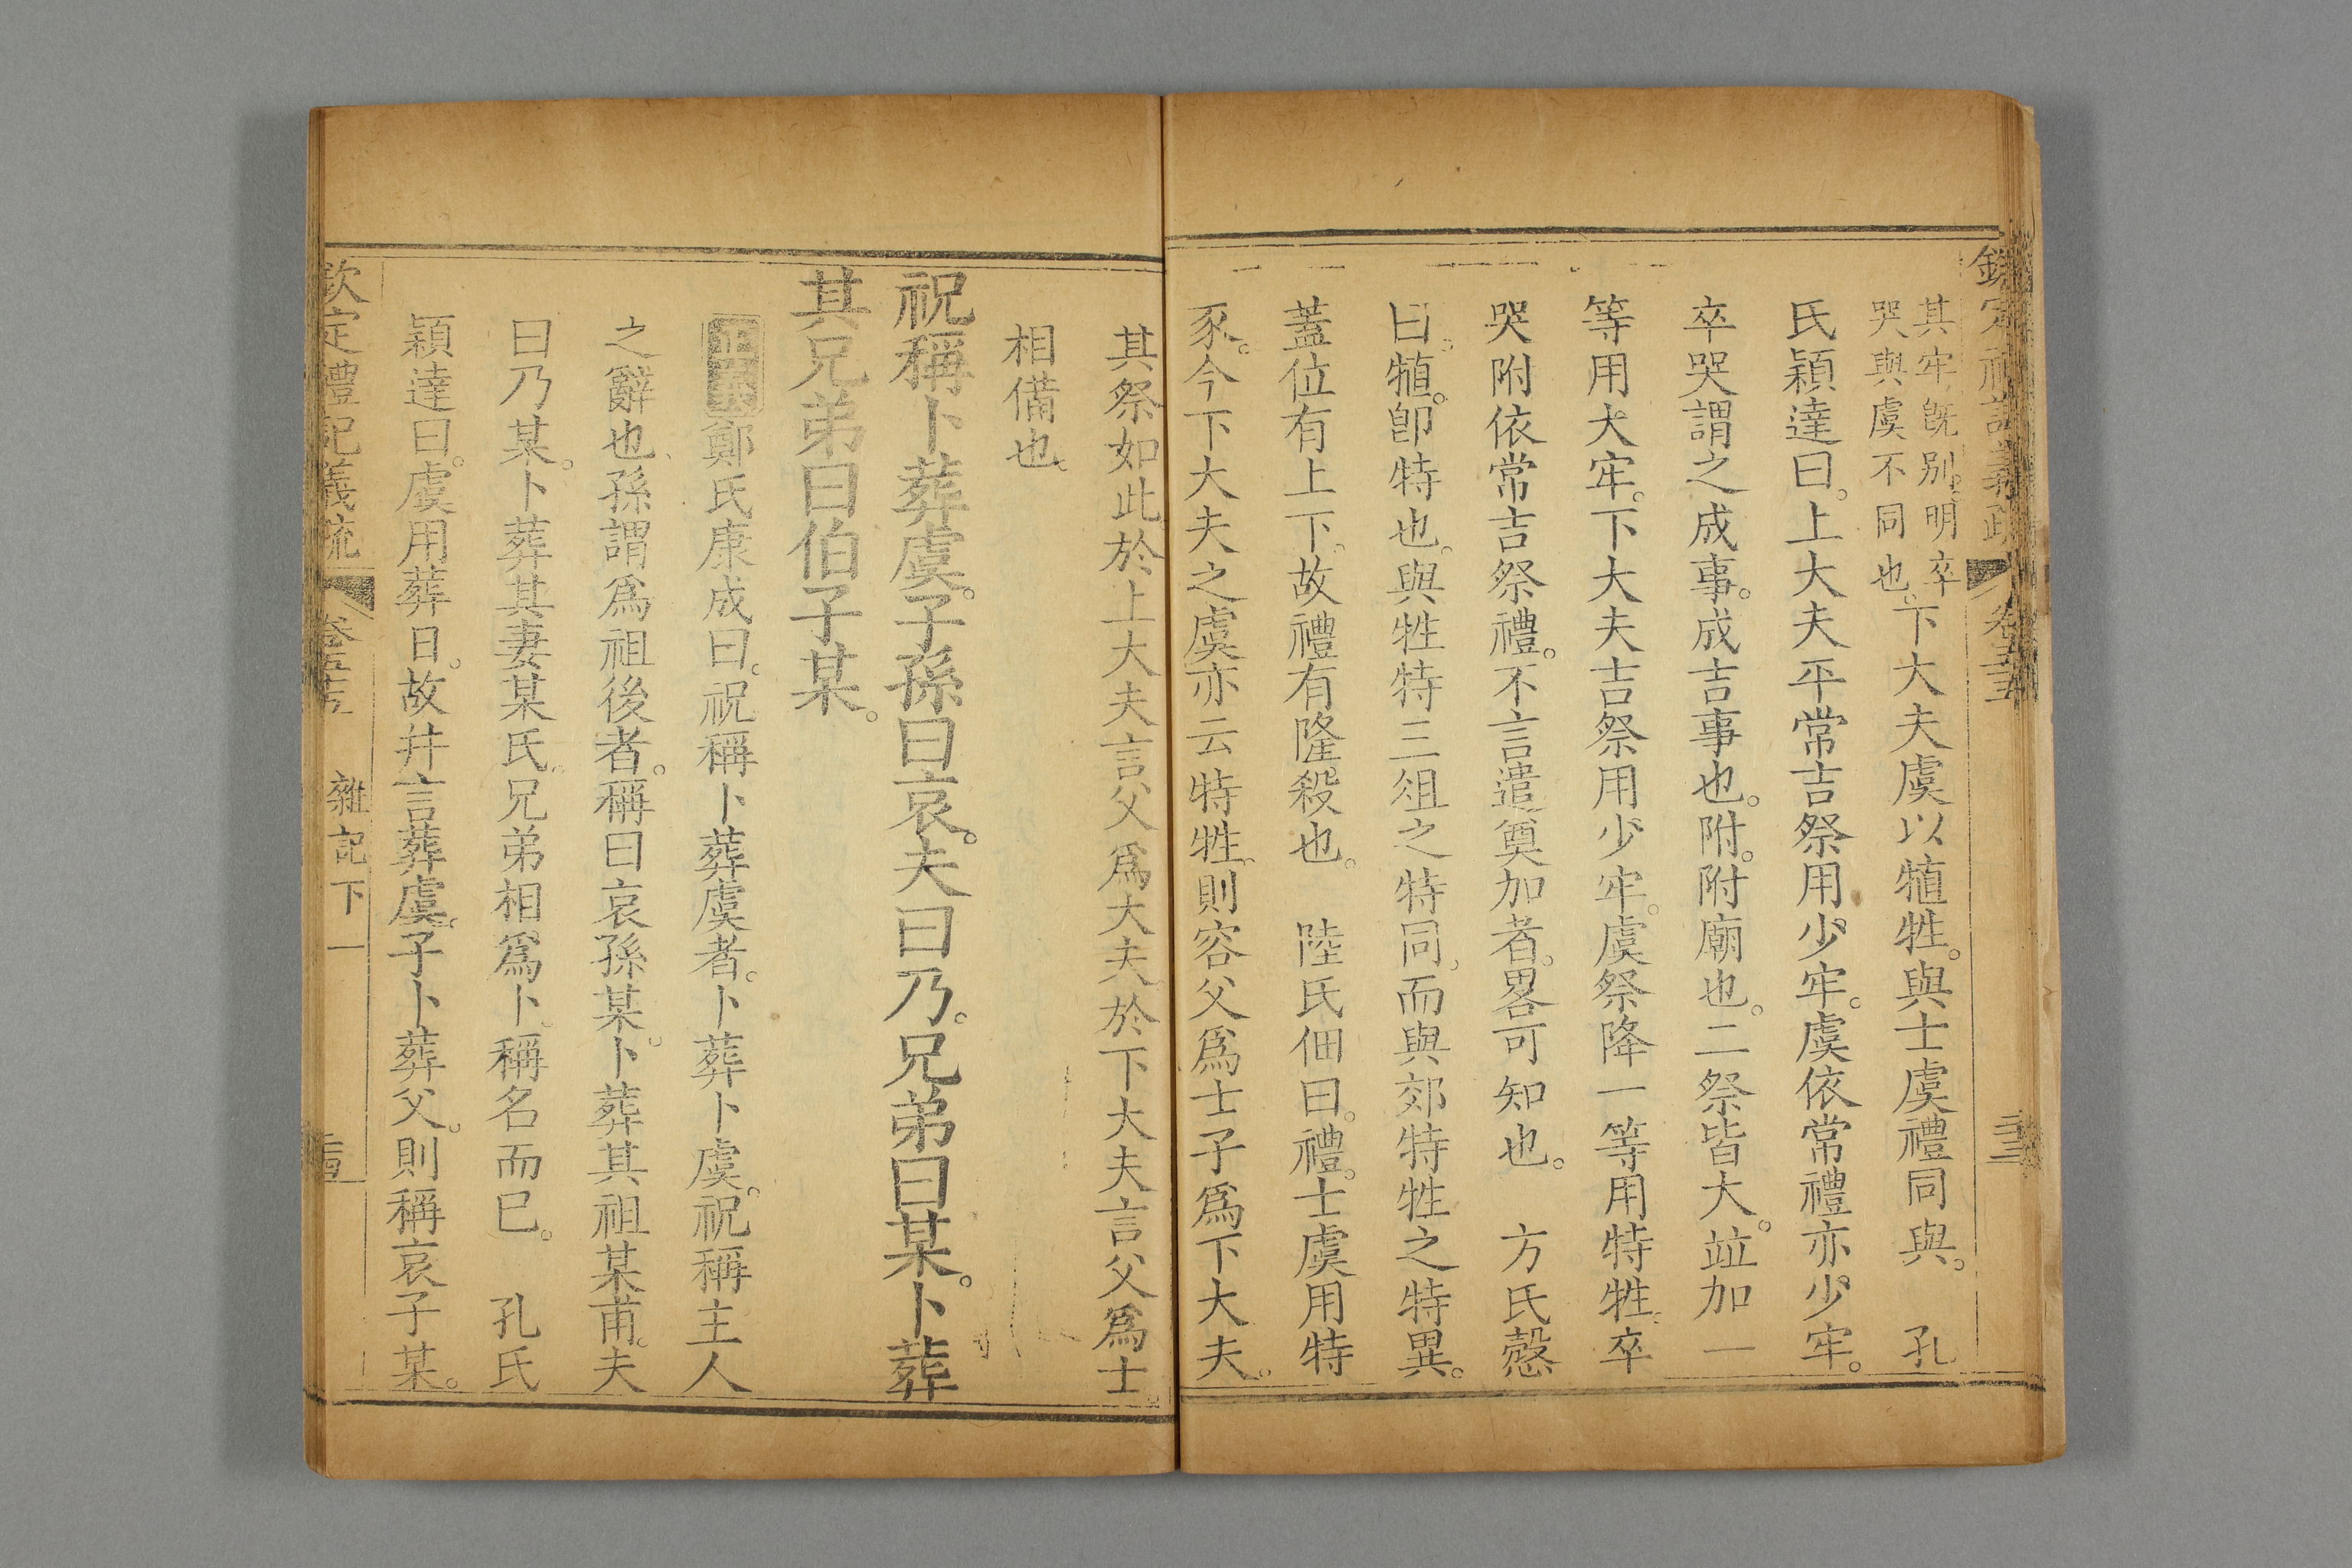 其牢旣別。明卒
哭與虞不同也。
下大夫虞以犆牲。與士虞禮同與。　孔
氏穎達曰。上大夫平常吉祭用少牢。虞依常禮亦少牢。
卒哭謂之成事。成吉事也。附。附廟也。二祭皆大。竝加一
等用大牢。下大夫吉祭用少牢。虞祭降一等用特牲。卒
哭附依常吉祭禮。不言遣奠加者。畧可知也。　方氏慤
曰。犆。卽特也。與牲特三俎之特同。而與郊特牲之特異。
蓋位有上下。故禮有隆殺也。　陸氏佃曰。禮。士虞用特
豕。今下大夫之虞亦云特牲。則容父爲士子爲下大夫。
其祭如此。於上大夫言父爲大夫。於下大夫言父爲士。
相備也。
祝稱卜葬虞。子孫曰哀。夫曰乃。兄弟曰某。卜葬
其兄弟曰伯子某。
正義鄭氏康成曰。祝稱卜葬虞者。卜葬卜虞。祝稱主人
之辭也。孫謂爲祖後者。稱曰哀孫某。卜葬其祖某甫。夫
曰乃某。卜葬其妻某氏。兄弟相爲卜。稱名而已。　孔氏
穎達曰。虞用葬日。故幷言葬虞。子卜葬父。則稱哀子某。
欽定禮記義疏
雜記下一